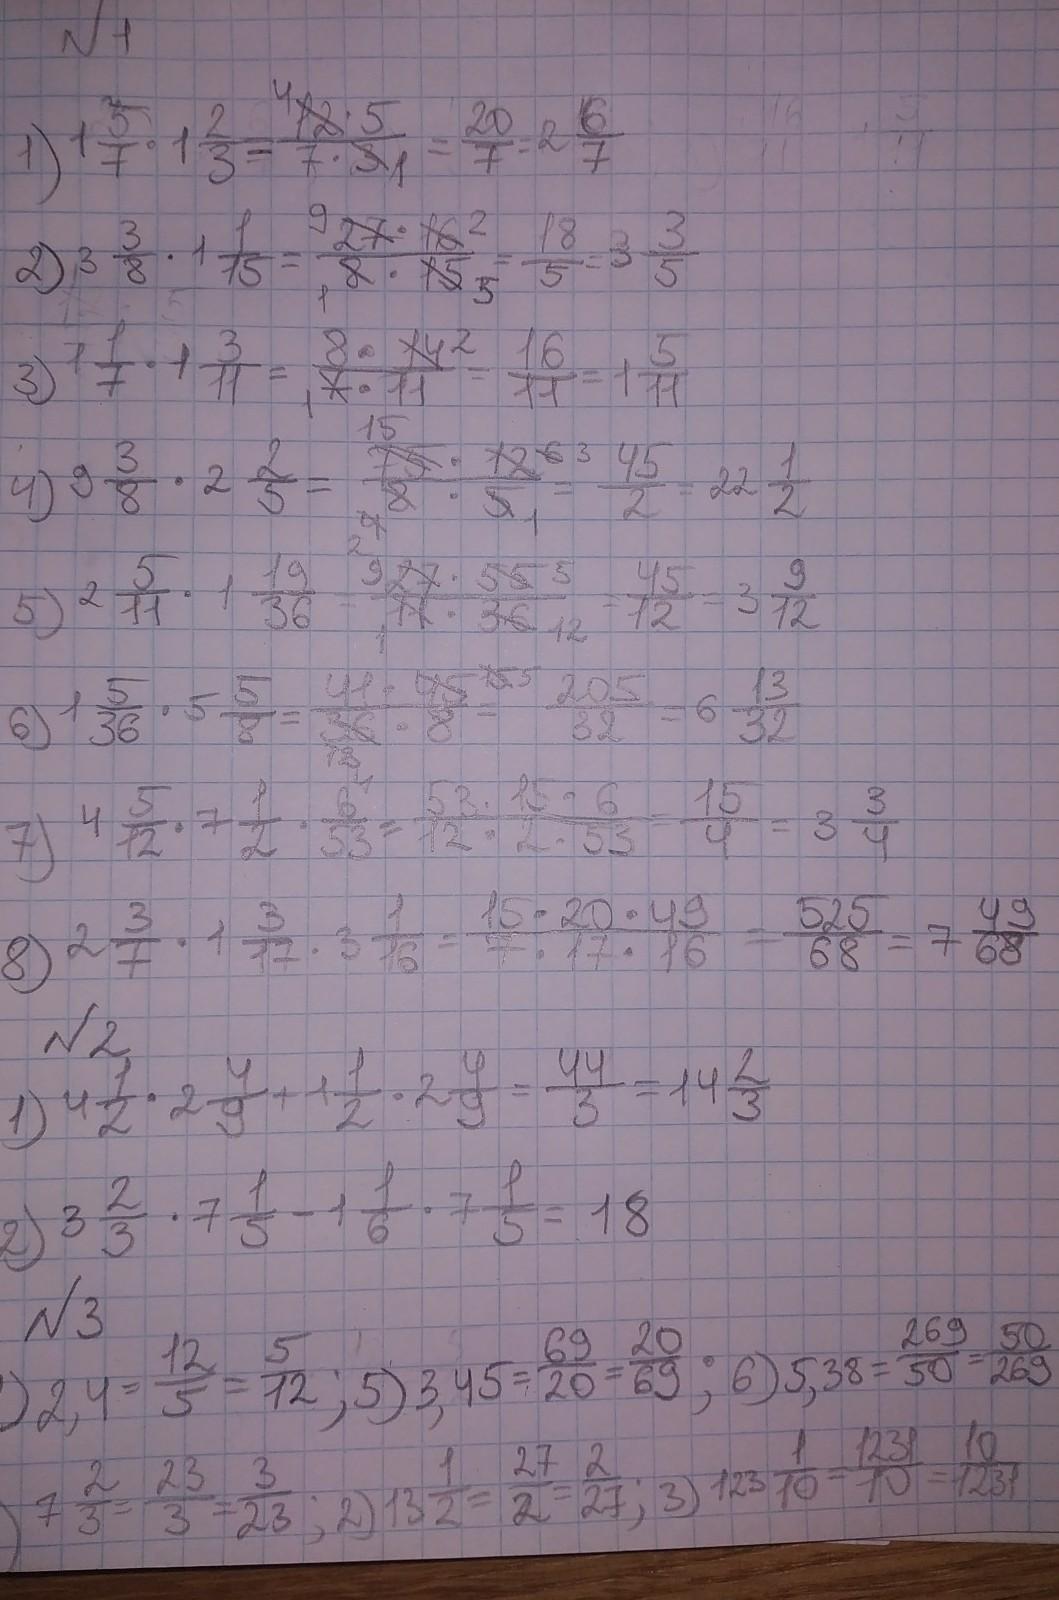 №1
1) 1 5/7 · 1 2/3 = 12·5/7·3 = 20/7 = 2 6/7
2) 3 3/8 · 1 1/15 = 27·16/8·15 = 18/5 = 3 3/5
3) 1 1/7 · 1 3/11 = 8·14/7·11 = 16/11 = 1 5/11
4) 9 3/8 · 2 2/5 = 75·12/8·5 = 45/2 = 22 1/2
5) 2 5/11 · 1 19/36 = 27·55/11·36 = 45/12 = 3 9/12
6) 1 5/36 · 5 5/8 = 41·45/36·8 = 205/32 = 6 13/32
7) 4 5/12 · 7 1/2 · 6/53 = 53·15·6/12·2·53 = 15/4 = 3 3/4
8) 2 3/7 · 1 3/17 · 3 1/16 = 15·20·49/7·17·16 = 525/68 = 7 49/68
№2
1) 4 1/2 · 2 4/9 + 1 1/2 · 2 4/9 = 44/3 = 14 2/3
2) 3 2/3 · 7 1/5 − 1 1/6 · 7 1/5 = 18
№3
) 2,4 = 12/5 = 5/12; 5) 3,45 = 69/20 = 20/69; 6) 5,38 = 269/50 = 50/269
) 7 2/3 = 23/3 = 3/23; 2) 13 1/2 = 27/2 = 2/27; 3) 123 1/10 = 1231/10 = 10/1231